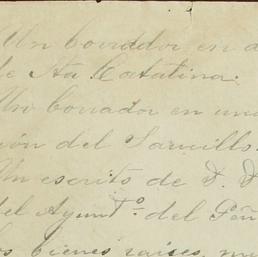 Un borrador en
de Sta Catalina.
Un borrador en una
ción del
Un escrito de D.
del Ayunt.º del
bienes raises,